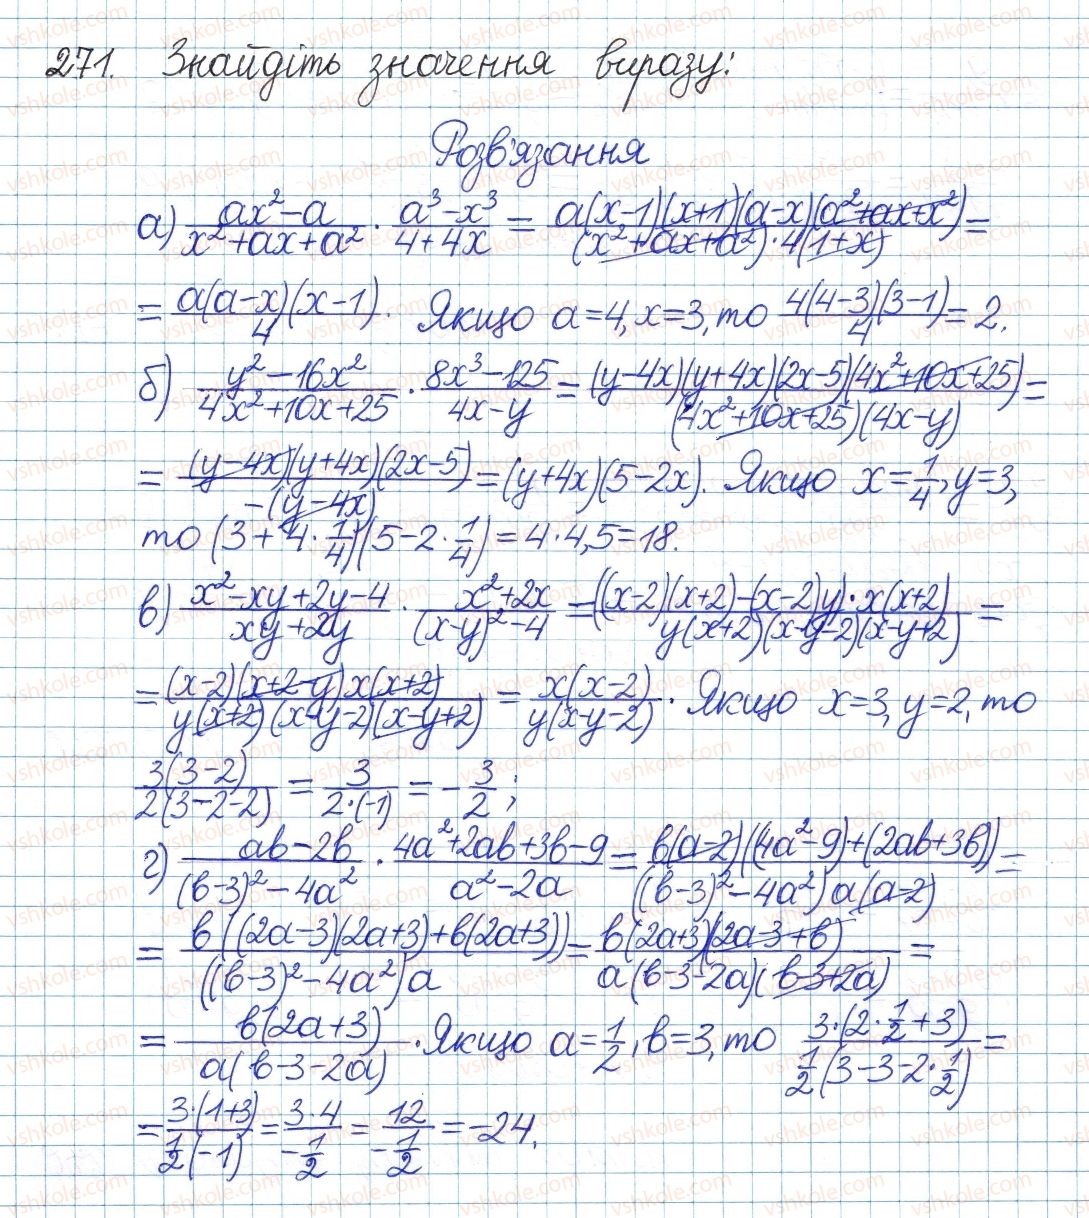 271. Знайдіть значення виразу:
Розв'язання
а) (ax²-a)/(x²+ax+a²) · (a³-x³)/(4+4x) = (a(x-1)(x+1)(a-x)(a²+ax+x²))/((x²+ax+a²)·4(1+x)) =
= (a(a-x)(x-1))/4. Якщо a=4, x=3, то (4(4-3)(3-1))/4 = 2.
б) (y²-16x²)/(4x²+10x+25) · (8x³-125)/(4x-y) = ((y-4x)(y+4x)(2x-5)(4x²+10x+25))/((4x²+10x+25)(4x-y)) =
= ((y-4x)(y+4x)(2x-5))/(-(y-4x)) = (y+4x)(5-2x). Якщо x=1/4, y=3,
то (3+4·1/4)(5-2·1/4) = 4·4,5=18.
в) (x²-xy+2y-4)/(xy+2y) · (x²+2x)/((x-y)²-4) = (((x-2)(x+2)-(x-2)y)·x(x+2))/(y(x+2)(x-y-2)(x-y+2)) =
= ((x-2)(x+2-y)x(x+2))/(y(x+2)(x-y-2)(x-y+2)) = (x(x-2))/(y(x-y-2)). Якщо x=3, y=2, то
(3(3-2))/(2(3-2-2)) = 3/(2·(-1)) = -3/2;
г) (ab-2b)/((b-3)²-4a²) · (4a²+2ab+3b-9)/(a²-2a) = (b(a-2)((4a²-9)+(2ab+3b)))/(((b-3)²-4a²)a(a-2)) =
= (b((2a-3)(2a+3)+b(2a+3)))/(((b-3)²-4a²)a) = (b(2a+3)(2a-3+b))/(a(b-3-2a)(b-3+2a)) =
= (b(2a+3))/(a(b-3-2a)). Якщо a=1/2, b=3, то (3·(2·1/2+3))/(1/2(3-3-2·1/2)) =
= (3·(1+3))/(1/2(-1)) = (3·4)/(-1/2) = 12/(-1/2) = -24.
vshkole.com